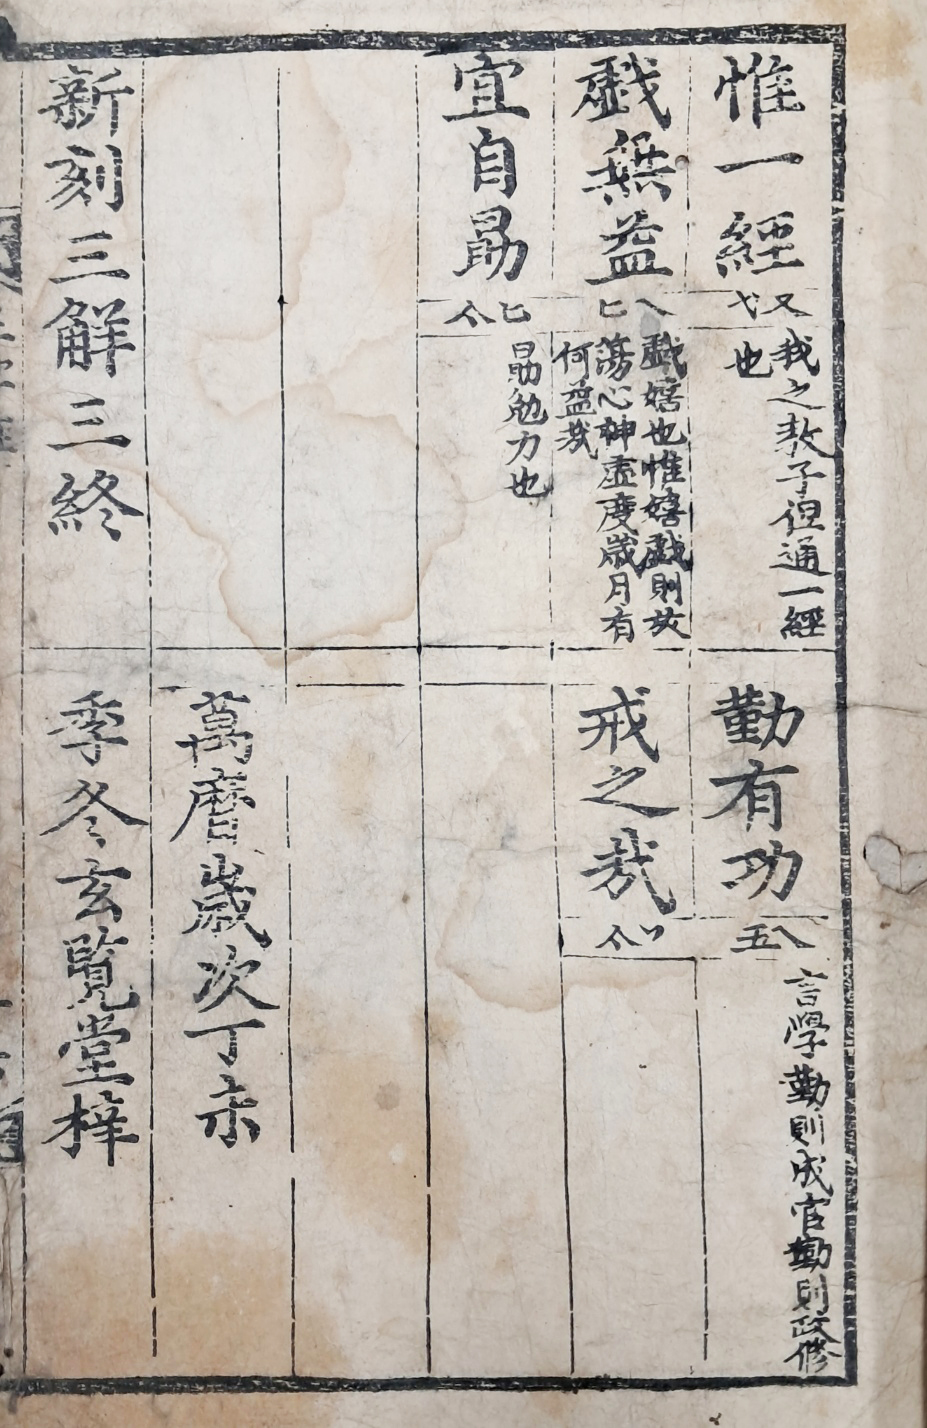 惟一經
又 弋
我之教子但通一經
也
勤有功
八 五
言學勤則成官勤則政修
戱無益
八 匕
戱嬉也惟嬉戱則放
蕩心神虛度歲月有
何益哉
戒之哉
宜自勗
匕
勗勉力也
萬曆歲次丁未
新刻三解三終
季冬玄覧堂梓